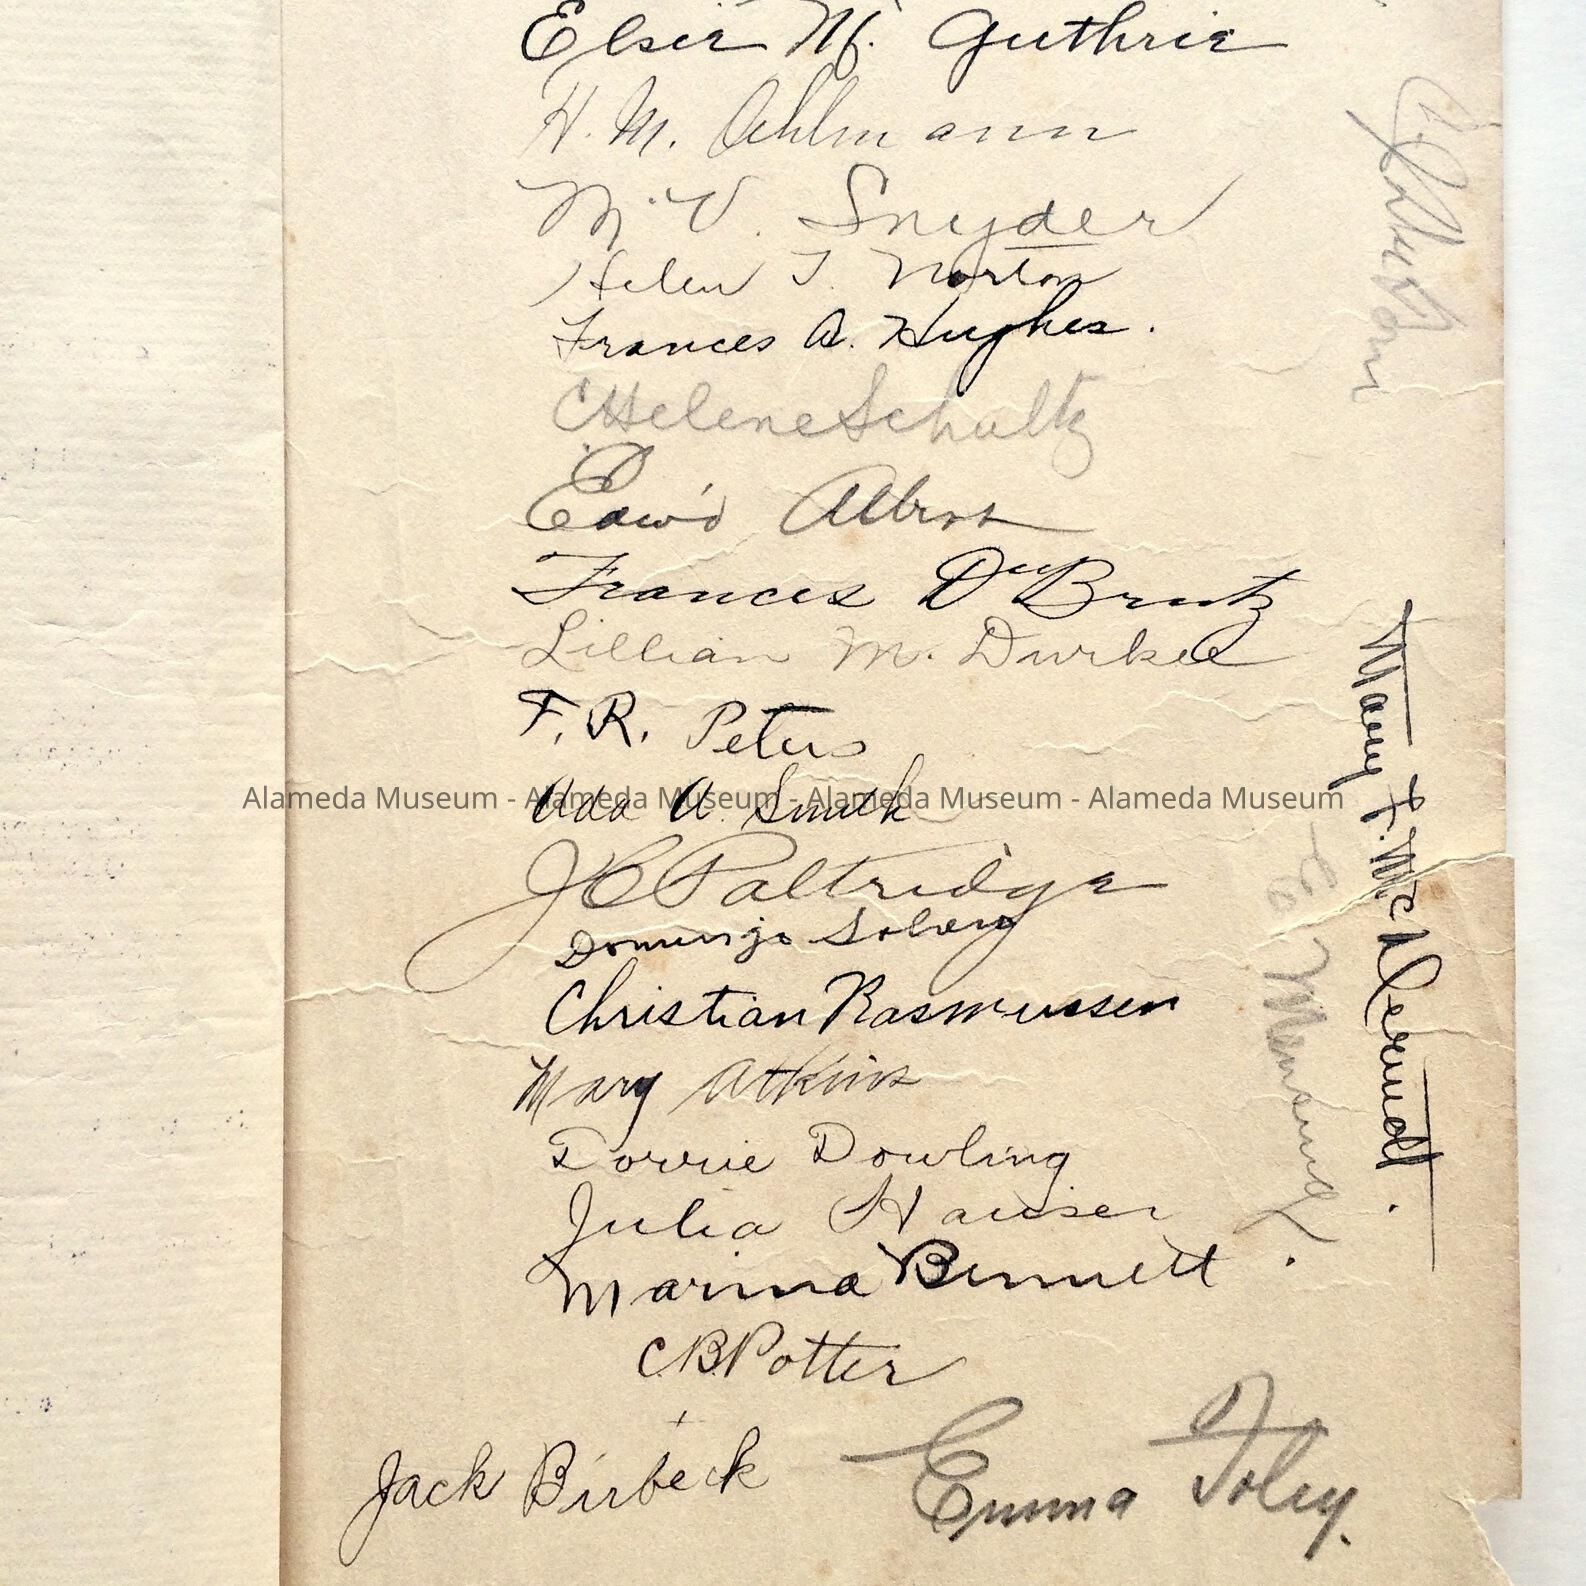 Elsie M. Guthrie
H. M. Ahlmann
M. V. Snyder
Helen T. Norton
Frances A. Hughes.
C Helene Schultz
Edw'd
Frances Du Brutz
Lillian M. Durkee
F. R. Peters
Ada A. Smith
Alameda Museum - Alameda Museum - Alameda Museum - Alameda Museum
J C Paltridge
Domingo
Christian Rasmussen
Mary Atkins
Dorrie Dowling
Julia Hauser
Marina Bennett
C. B. Potter
Jack Birbeck
Emma Foley.
Mary F. McDermott.